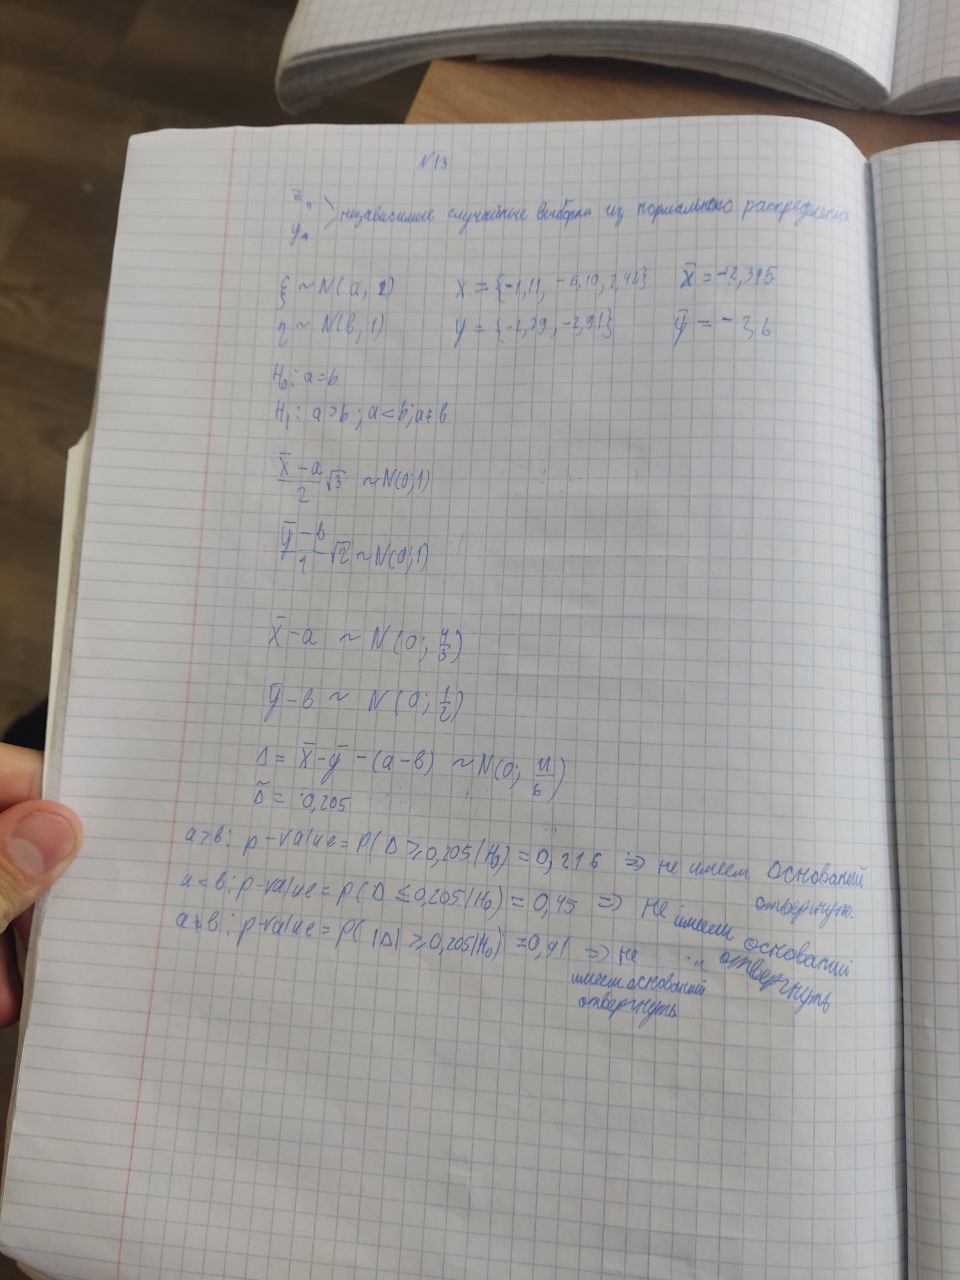 N13
yₙ } независимые случайные выборки из нормального распределения
ξ ~ N(a, 2) X = {-1,11, -6,10, 2,42} X̄ = -2,395
η ~ N(b, 1) y = {-2,39, -2,91} ȳ = -2,6
H₀: a=b
H₁: a>b; a<b; a≠b
(X̄-a)/2 √3 ~ N(0;1)
(ȳ-b)/1 √2 ~ N(0;1)
X̄-a ~ N(0; 4/3)
ȳ-b ~ N(0; 1/2)
Δ = X̄-ȳ-(a-b) ~ N(0; 11/6)
Δ̃ = 0,205
a>b: p-value = P(Δ ≥ 0,205/H₀) = 0,216 ⇒ не имеем оснований отвергнуть.
a<b: p-value = P(Δ ≤ 0,205/H₀) = 0,45 ⇒ не имеем оснований отвергнуть
a≠b: p-value = P(|Δ| ≥ 0,205/H₀) = 0,91 ⇒ не
имеем оснований
отвергнуть